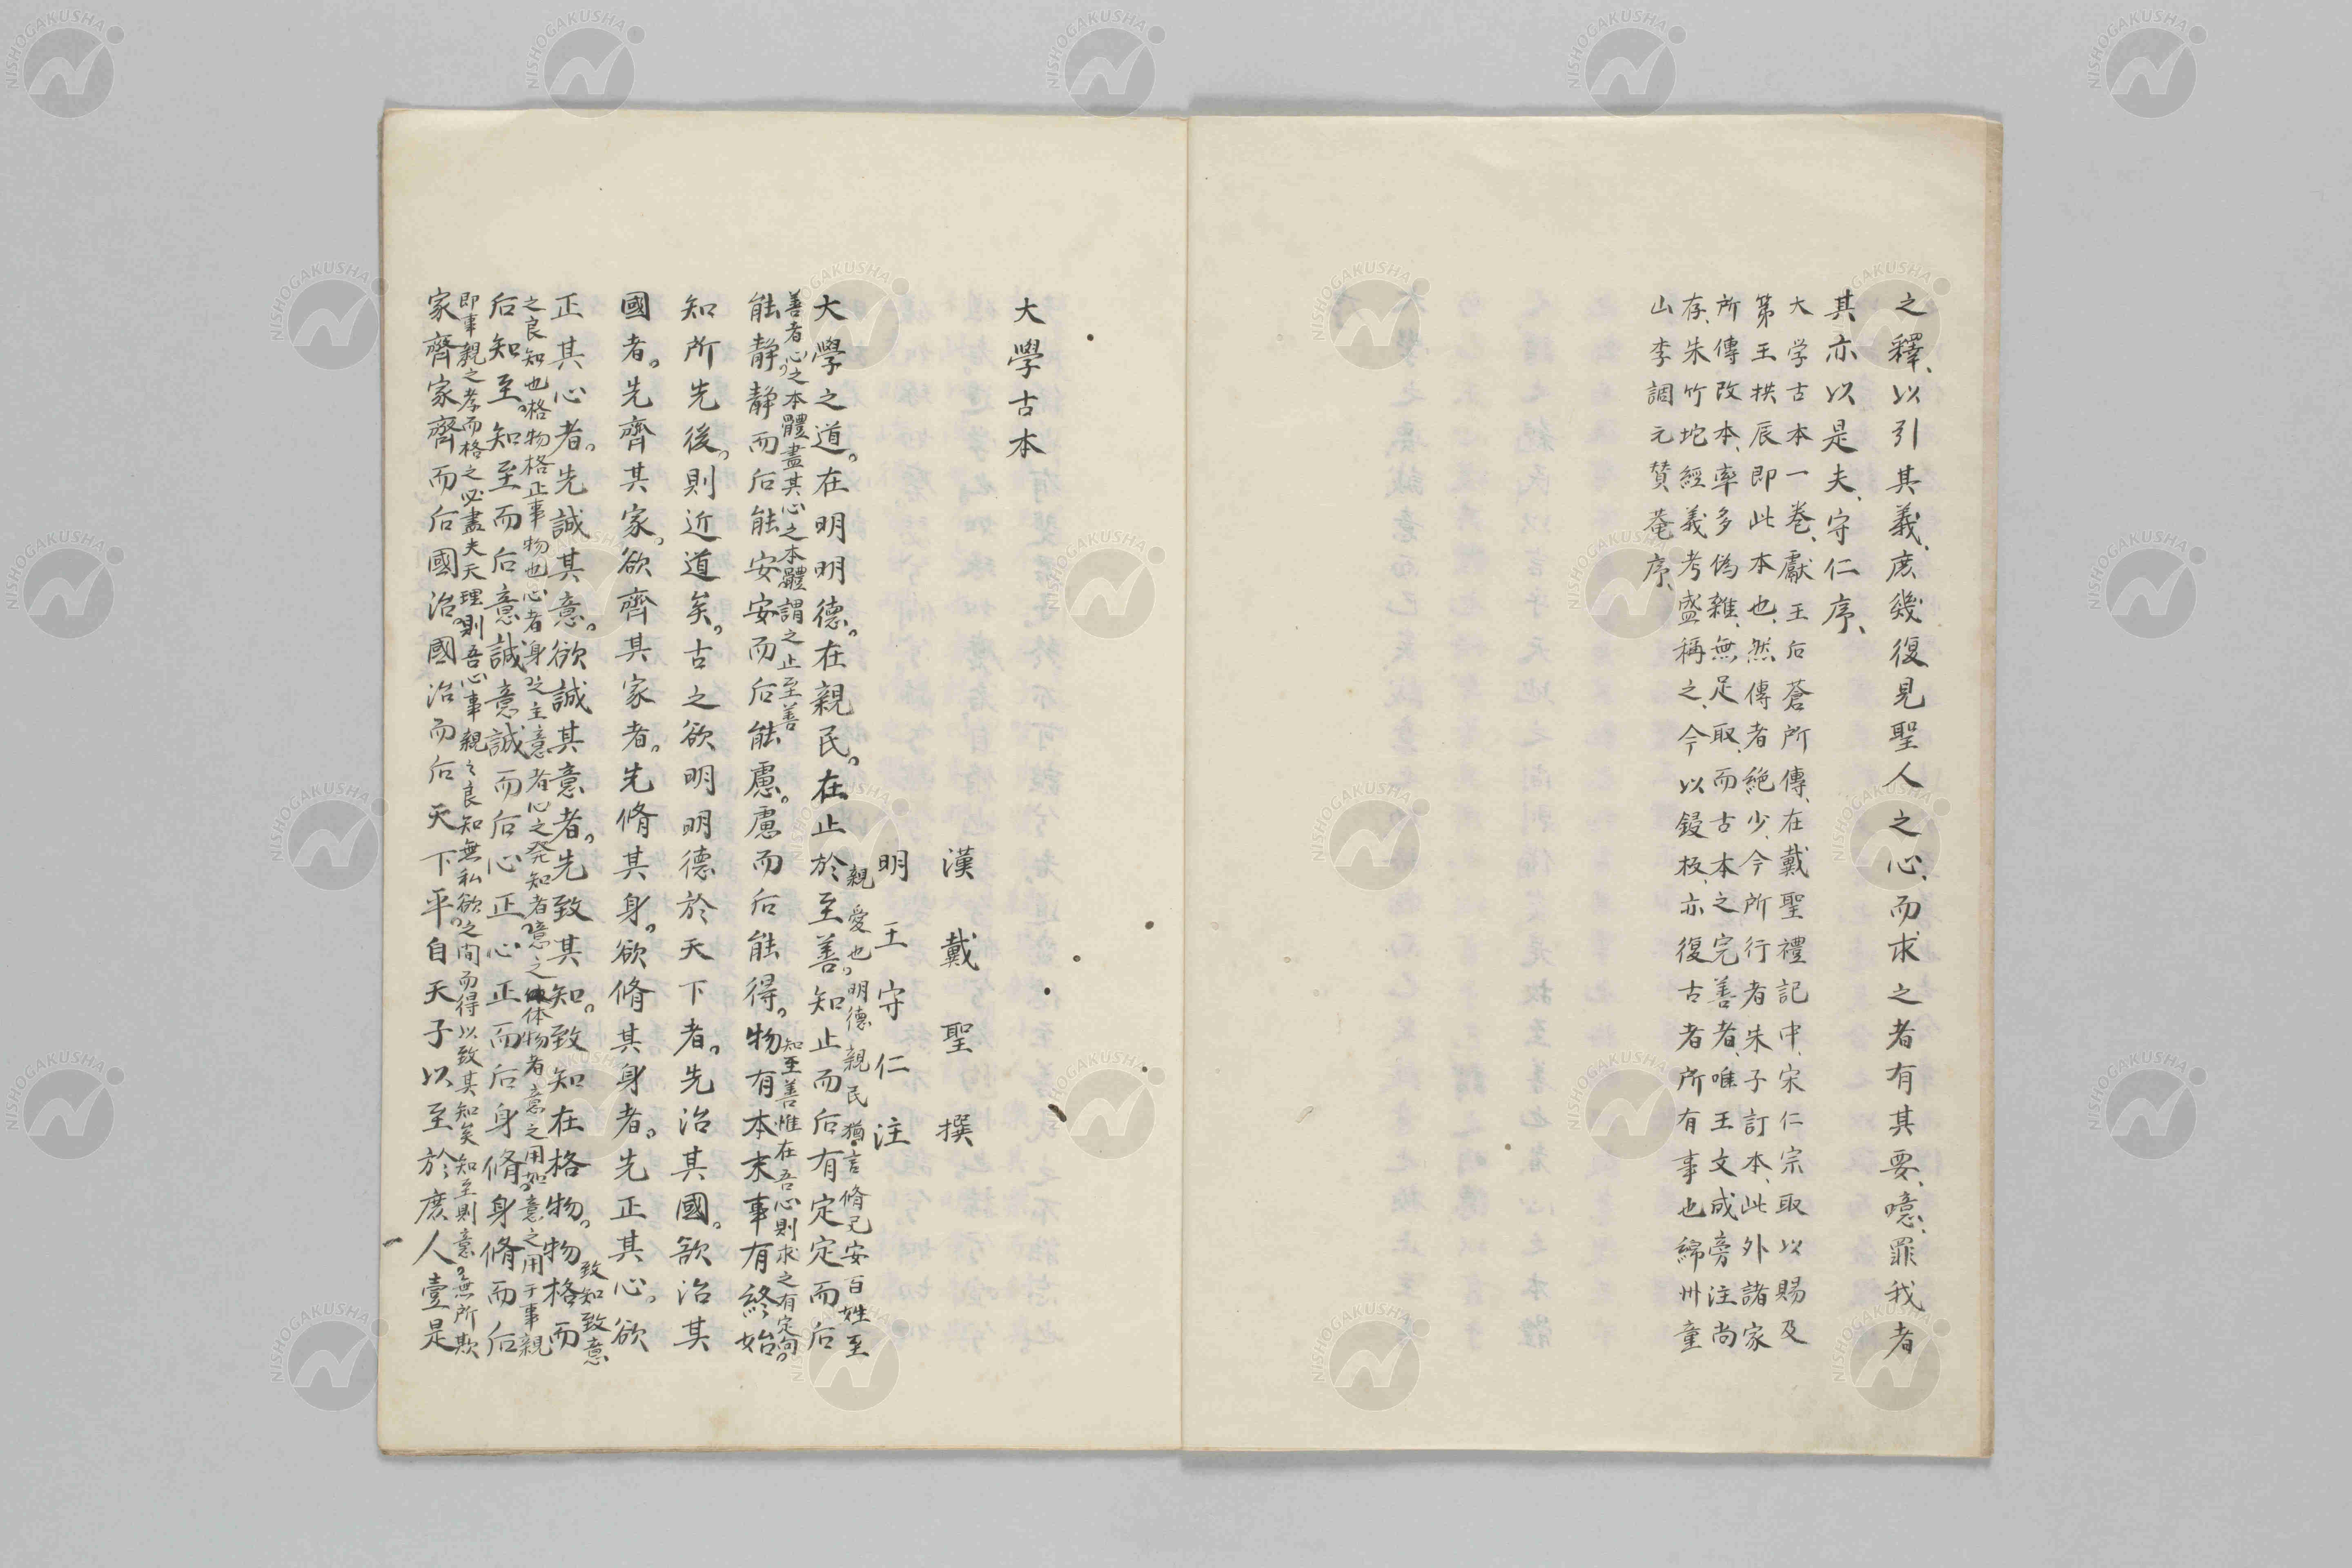 之釋、以引其義、庶幾復見聖人之心、而求之者有其要、噫、罪我者
其亦以是夫、守仁序、
大学古本一巻、獻王后蒼所傳、在戴聖禮記中、宋仁宗取以賜及
第王拱辰即此本也、然傳者絶少、今所行者朱子訂本、此外諸家
所傳改本、率多偽雜、無足取、而古本之完善者、唯王文成旁注尚
存、朱竹坨經義考盛稱之、今以鋟板、亦復古者所有事也綿州童
山李調元賛菴序、
大學古本
漢戴聖撰
明王守仁注
親愛也。明德親民猶言脩己安百姓至
大學之道。在明明德。在親民。在止於至善。知止而后有定定而后
善者心之本體盡其心之本體謂之止至善
知至善惟在吾心則求之有定向。
能靜靜而后能安安而后能慮。慮而后能得。物有本末事有終始
知所先後。則近道矣。古之欲明明德於天下者。先治其國。欲治其
國者。先齊其家。欲齊其家者。先脩其身。欲脩其身者。先正其心。欲
致知致意
正其心者。先誠其意。欲誠其意者。先致其知。致知在格物。物格而
之良知也格物格正事物也心者身之主意者心之発知者意之体物者意之用如意之用于事親
后知至。知至而后意誠意誠而后心正心正而后身脩身脩而后
即事親之孝而格之必盡夫天理則吾心事親之良知無私欲之間而得以致其知矣知至則意無所欺
家齊家齊而后國治。國治而后天下平。自天子以至於庶人壹是
NISHOGAKUSHA